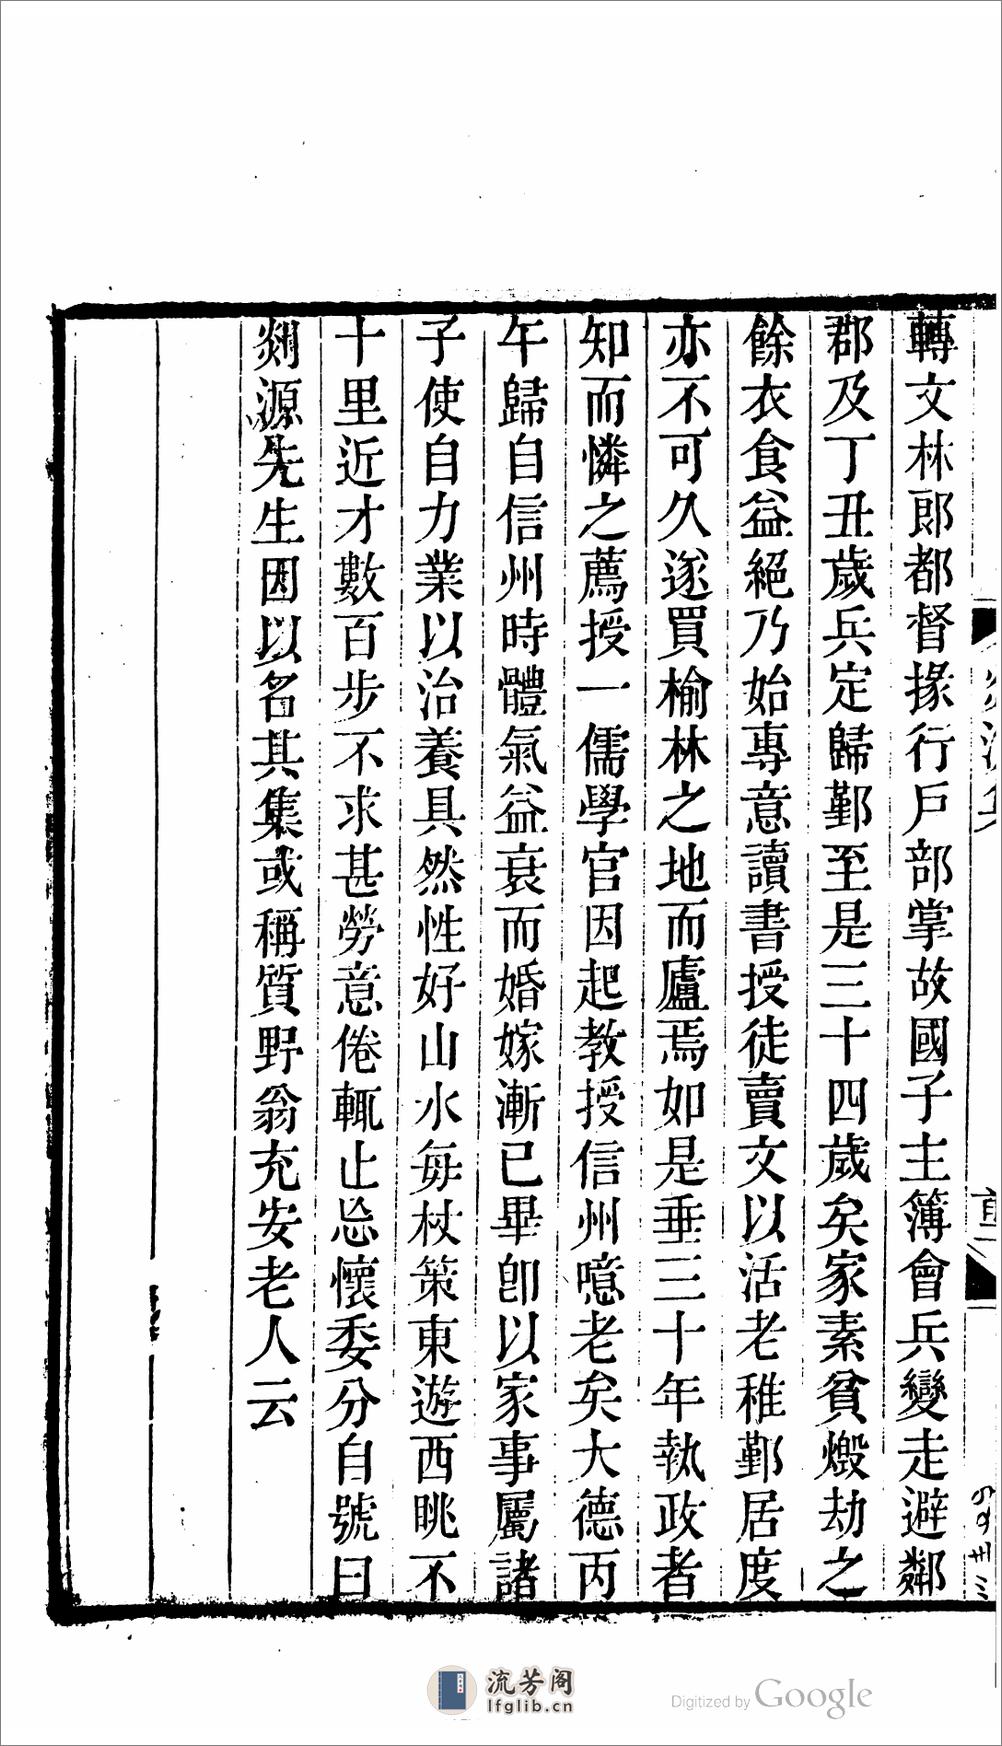 轉文林郎都督掾行戸部掌故國子主簿會兵變走避鄰
郡及丁丑歲兵定歸鄞至是三十四歲矣家素貧燬劫之
餘衣食益絕乃始專意讀書授徒賣文以活老稚鄞居度
亦不可久遂買榆林之地而廬焉如是垂三十年執政者
知而憐之薦授一儒學官因起教授信州噫老矣大德丙
午歸自信州時體氣益衰而婚嫁漸已畢卽以家事屬諸
子使自力業以治養具然性好山水每杖策東遊西眺不
十里近才數百步不求甚勞意倦輒止忘懷委分自號曰
剡源先生因以名其集或稱質野翁充安老人云
流芳阁
lfglib.cn
Digitized by Google